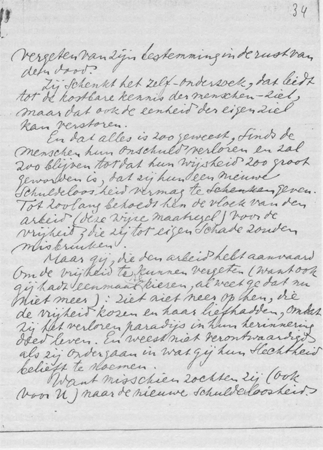 34
vergeten van zijn bestemming in de rust van
den dood?
Zij schenkt het zelf-onderzoek, dat leidt
tot de kostbare kennis der menschen-ziel,
maar dat ook de eenheid der eigen ziel
kan verstoren.
En dat alles is zoo geweest, sinds de
menschen hun onschuld verloren en zal
zoo blijven tot dat hun wijsheid zoo groot
geworden is, dat zij hun een nieuwe
schuldeloosheid vermag te geven.
Tot zoolang behoedt hen de vloek van den
arbeid (deze wijze maatregel) voor de
vrijheid die zij tot eigen schade zouden
misbruiken.
Maar gij, die den arbeid hebt aanvaard
om de vrijheid te kunnen vergeten (want ook
gij hadt eenmaal te kiezen, al weet ge dat nu
niet meer): ziet niet neer op hen, die
de vrijheid kozen en haar liefhadden, omdat
zij het verloren paradijs in hun herinnering
deed leven. En weest niet verontwaardigd
als zij ondergaan in wat gij hun slechtheid
belieft te noemen.
Want misschien zochten zij (ook
voor U) naar de nieuwe schuldeloosheid